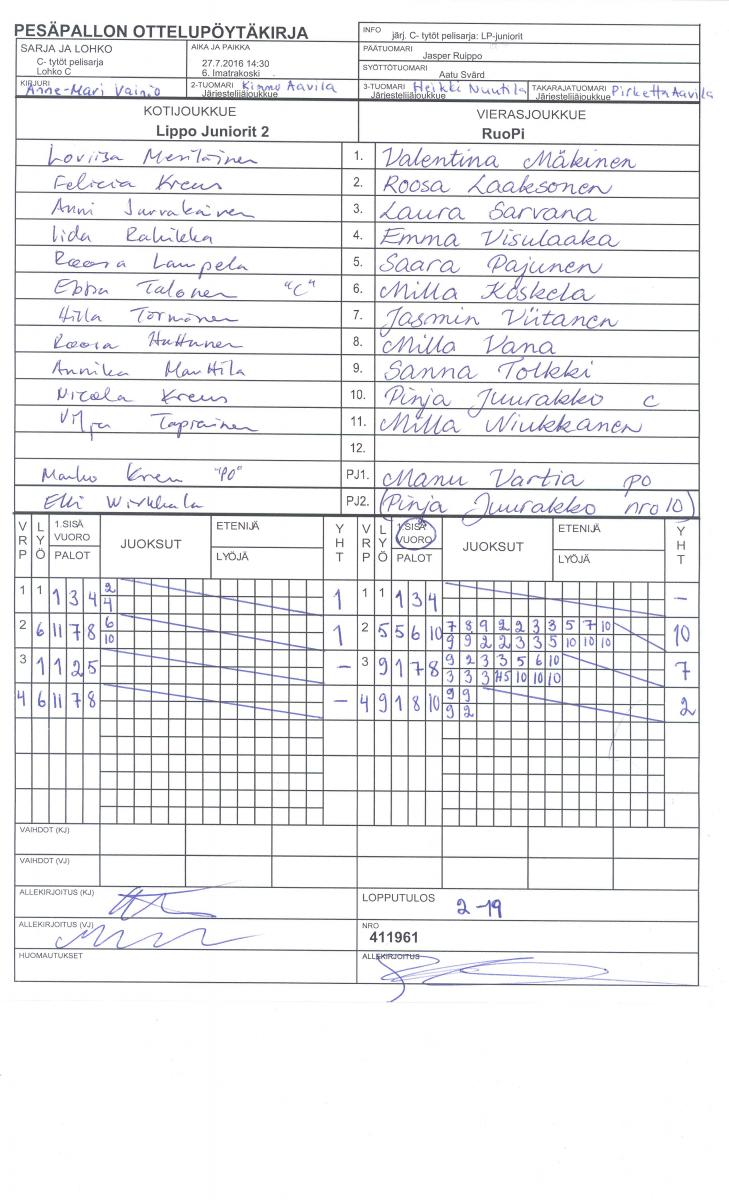 PESÄPALLON OTTELUPÖYTÄKIRJA
INFO järj. C- tytöt pelisarja: LP-juniorit
SARJA JA LOHKO
C- tytöt pelisarja
Lohko C
AIKA JA PAIKKA
27.7.2016 14:30
6. Imatrakoski
PÄÄTUOMARI
Jasper Ruippo
SYÖTTÖTUOMARI
Aatu Svärd
KIRJURI Anne-Mari Vainio
2-TUOMARI Kimmo Aavila
Järjestelijäjoukkue
3-TUOMARI Heikki Nuutila
Järjestelijäjoukkue
TAKARAJATUOMARI Pirketta Aavila
Järjestelijäjoukkue
KOTIJOUKKUE
Lippo Juniorit 2
VIERASJOUKKUE
RuoPi
Loviisa Meriläinen 1. Valentina Mäkinen
Felicia Kreus 2. Roosa Laaksonen
Anni 3. Laura Sarvana
Iida Rahikka 4. Emma Visulaaka
Roosa Lampela 5. Saara Pajunen
Ebba Talonen "C" 6. Milla Koskela
Hilla Törmänen 7. Jasmin Viitanen
Roosa Huttunen 8. Milla Vana
Annika Manttila 9. Sanna Tolkki
Nicola Kreus 10. Pinja Juurakko c
Vilja Tapiainen 11. Milla Niukkanen
12.
Marko "PO" PJ1. Manu Vartia po
Elli Wirkkala PJ2. (Pinja Juurakko nro 10)
VRP LYÖ 1.SISÄ VUORO PALOT JUOKSUT ETENIJÄ LYÖJÄ YHT VRP LYÖ 1.SISÄ VUORO PALOT JUOKSUT ETENIJÄ LYÖJÄ YHT
1 1 1 3 4 2 1 1 1 1 3 4 –
4
2 6 11 7 8 6 1 2 5 5 6 10 7 8 9 2 2 3 3 5 7 10 10
10 9 9 2 2 3 3 5 10 10 10
3 1 1 2 5 – 3 9 1 7 8 9 2 3 3 5 6 10 7
3 3 3 45 10 10 10
4 6 11 7 8 – 4 9 1 8 10 9 9 2
9 2
VAIHDOT (KJ)
VAIHDOT (VJ)
ALLEKIRJOITUS (KJ)
LOPPUTULOS 2 -19
ALLEKIRJOITUS (VJ)
NRO
411961
HUOMAUTUKSET
ALLEKIRJOITUS